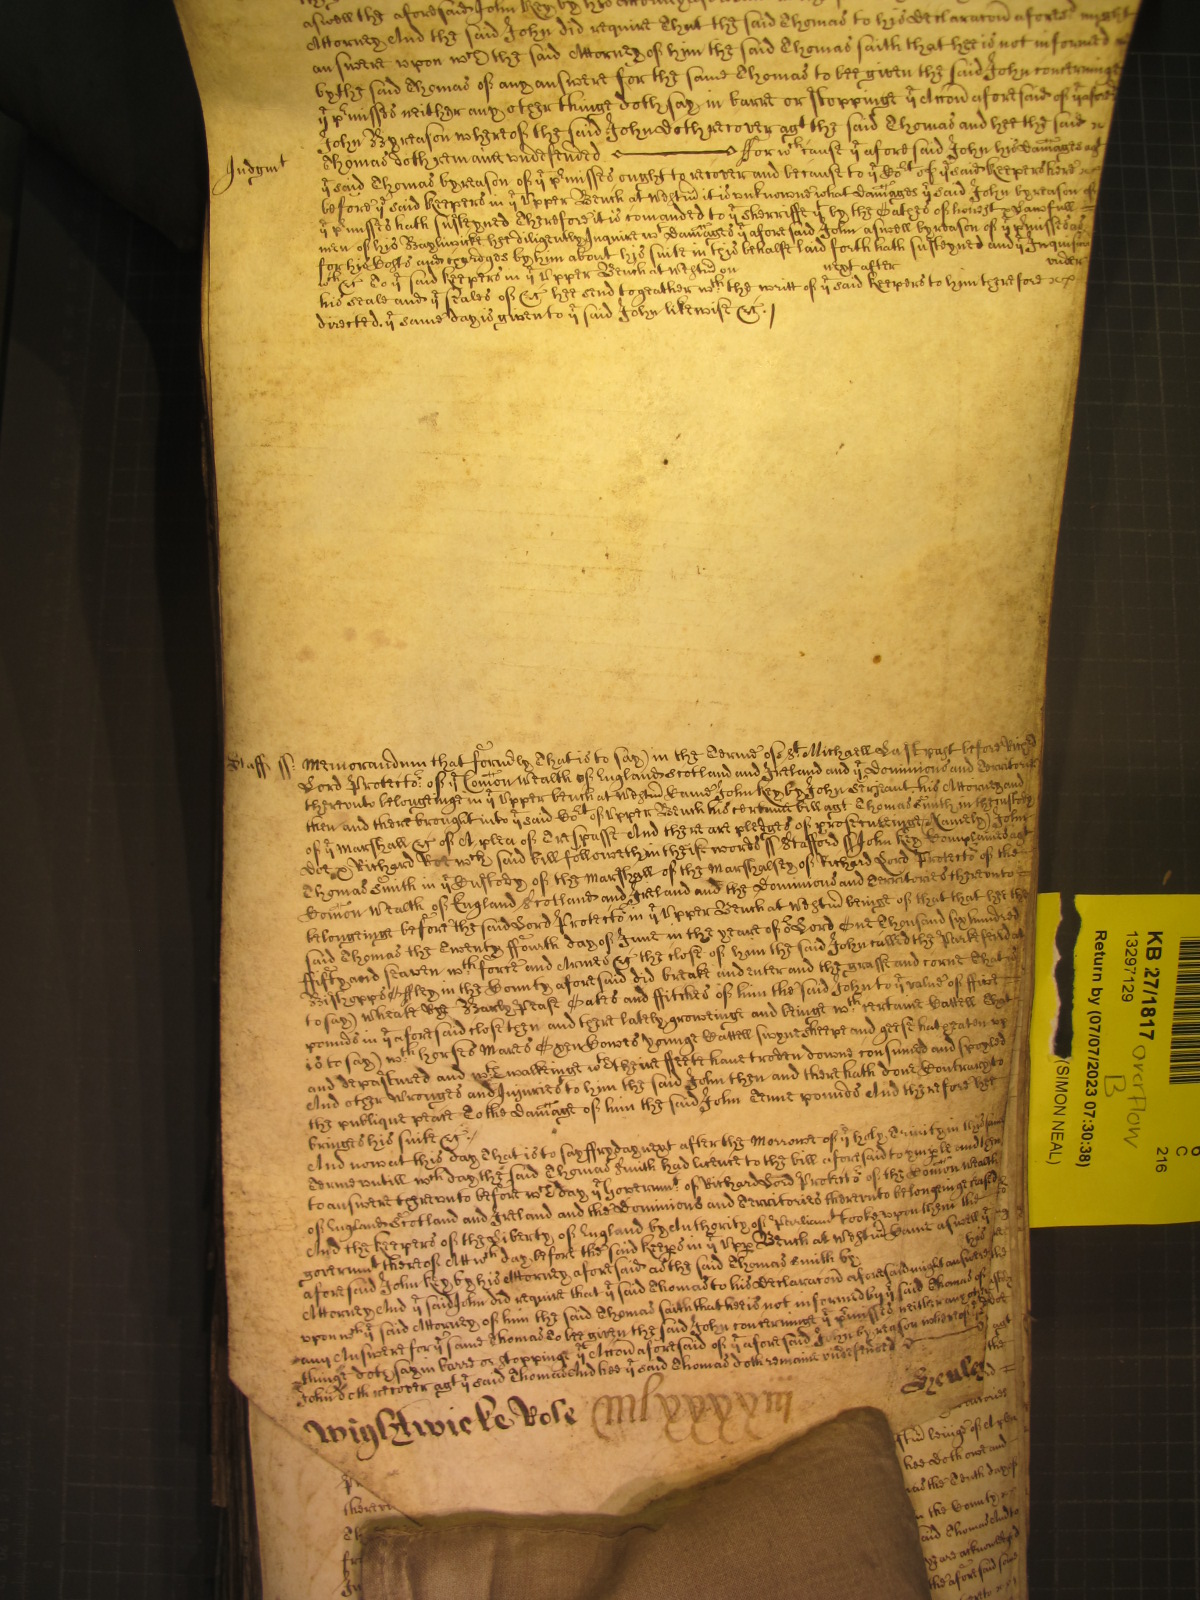 aswell the aforesaid John Key by his Attorney
Attorney And the said John did require That the said Thomas to his declaracon aforesd might
answere upon wch the said Attorney of him the said Thomas saith that hee is not informed
by the said Thomas of any answere for the same Thomas to bee given the said John concerninge
ye p'misses neither any other thinge doth say in barre or stoppinge ye Accon aforesaid of ye afore
John By reason whereof the said John doth recover agt the said Thomas and hee the said
Judgmt
Thomas doth remaine undefended ffor wch cause ye aforesaid John his damages agt
ye said Thomas by reason of ye p'misses ought to recover and because to ye Cort of ye said keepers here
before ye said keepers in ye Upper Bench at Westm it is unknowne what damages ye said John by reason of
ye p'misses hath susteyned Therefore it is comanded to ye Sherriffe yt by the Oathes of honest & lawfull
men of his Bayliwicke hee diligently Inquire wt damages ye aforesaid John aswell by reason of ye p'misses as
for his Costs and charges by him about his suite in this behalfe laid forth hath susteyned and ye Inquisicon
wch &c To ye said keepers in ye Upper Bench at Westm on next after under
his seale and ye seales of &c hee send togeather wth the writt of ye said keepers to him therefore
directed. ye same day is given to ye said John likewise &c.
Staff ss. Memorandum that formerly That is to say in the Terme of St Michaell Last past before Richd
Lord Protector of ye Comon wealth of England Scotland and Ireland and ye Dominions and Territories
thereunto belonginge in ye Upper bench at Westm Came John Key by John Sergeant his Attorney and
then and there brought into ye said Cort of Upper Bench his certaine bill agt Thomas Smith in the custody
of ye Marshall &c of A plea of Trespasse And there are pledges of prosecutinge (Namely) John
Doe & Richard Roe wch said bill followeth in theise words ss Stafford ss John Key Complaines agt
Thomas Smith in ye Custody of the Marshall of the Marshalsey of Richard Lord Protector of the
Comon Wealth of England Scotland and Ireland and the Dominions and Territories thereunto
belonginge before the said Lord Protector in ye Upper Bench at Westm beinge of that that hee the
said Thomas the Twenty ffourth day of June in the yeare of or Lord One Thousand six hundred
ffifty and seaven wth force and Armes &c the close of him the said John called the Parke feild at
Bishopps Offley in the County aforesaid did breake and enter and the grasse and corne That is
to say) Wheate Rye Barly Pease Oates and ffitches of him the said John to ye value of ffive
pounds in ye aforesaid close then and there lately groweinge and beinge wth certaine Cattell That
is to say) wth horses Mares Oxen Cowes younge Cattell swyne sheepe and geese hat eaten up
and depastured and wth walkeinge wth theire ffeete have troden downe consumed and spoyled
And other Wronges and Injuries to him the said John then and there hath done Contrary to
the publique peace To the damage of him the said John Tenne pounds And therefore hee
bringes his suite &c.
And now at this day That is to say ffryday next after the Morrowe of ye holy Trinity in this same
Terme untill wch day the said Thomas Smith had licence to the bill aforesaid to imple and then
to answere thereunto before wch day ye Governmt of Richard Lord Protector of the Comon wealth
of England Scotland and Ireland and the Dominions and Territories thereunto belonginge ceased
And the keepers of the liberty of England by Authority of Parliamt tooke upon them the
governmt thereof At wch day before the said keeps in ye Upp Bench at Westm Came aswell ye
aforesaid John Key by his Attorney aforesaid as the said Thomas Smith by his
Attorney And ye said John did require that ye said Thomas to his declaracon aforesaid might answere
upon wch ye said Attorney of him the said Thomas saith that he is not informed by ye said Thomas of
any Answere for ye same Thomas to be given the said John concerninge ye p'misses neither any other
thinge doth say in barre or stoppinge ye Accon aforesaid of ye aforesaid John by reason whereof ye
John doth recover agt ye said Thomas And hee ye said Thomas doth remaine undefended
Wightwicke Role
Henley
KB 27/1817
13297129
overflow
B
Return by (07/07/2023 07:30:38)
(SIMON NEAL)
216
C